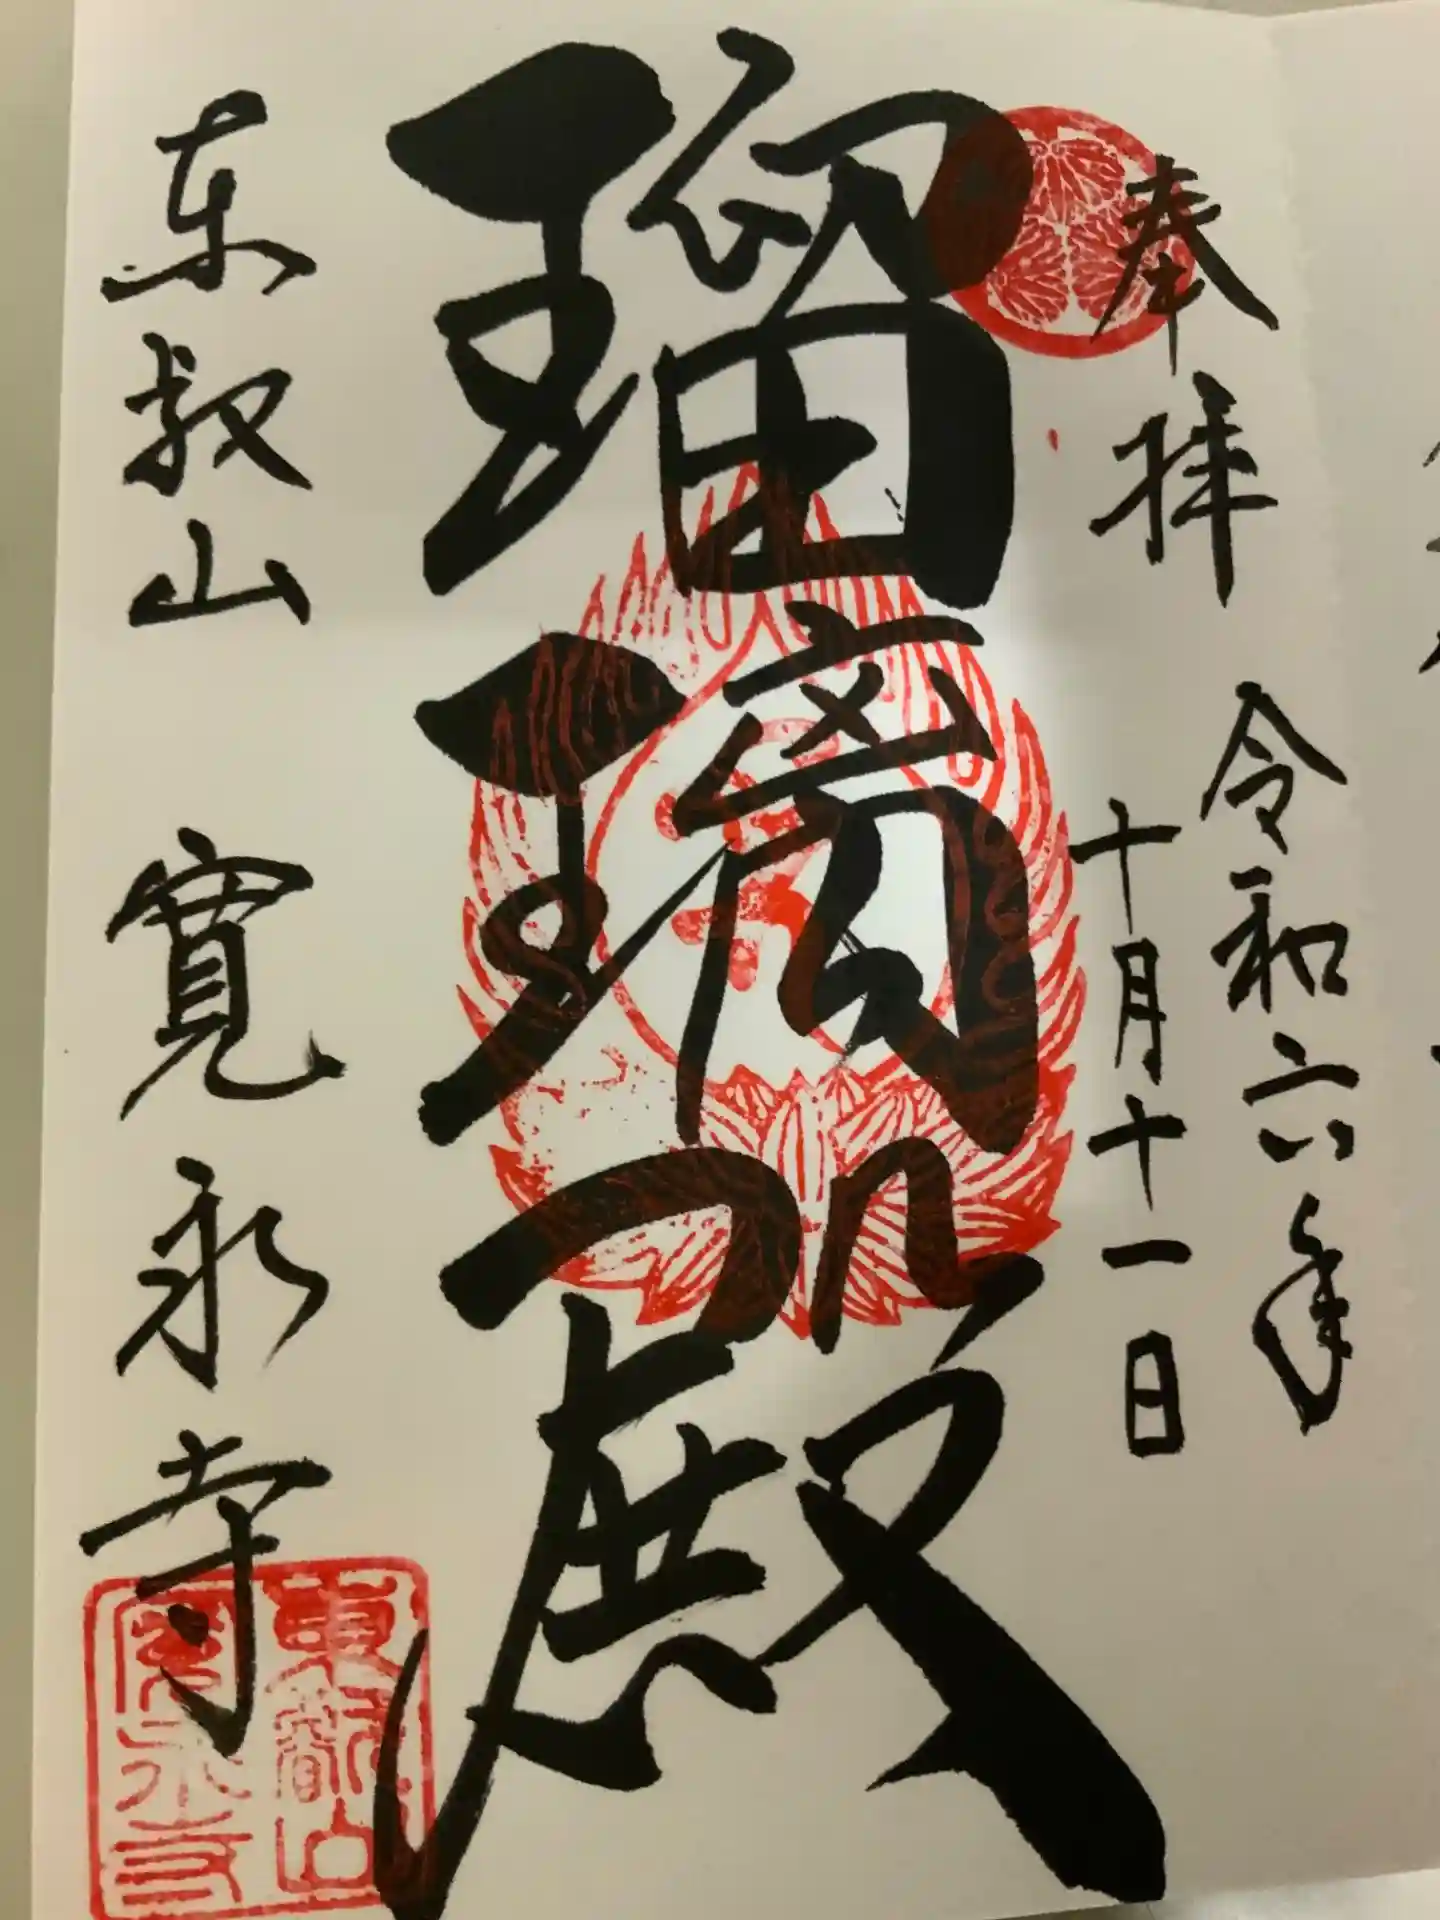 奉拝
令和六年
十月十一日
瑠璃殿
東叡山 寛永寺
東叡山
寛永寺